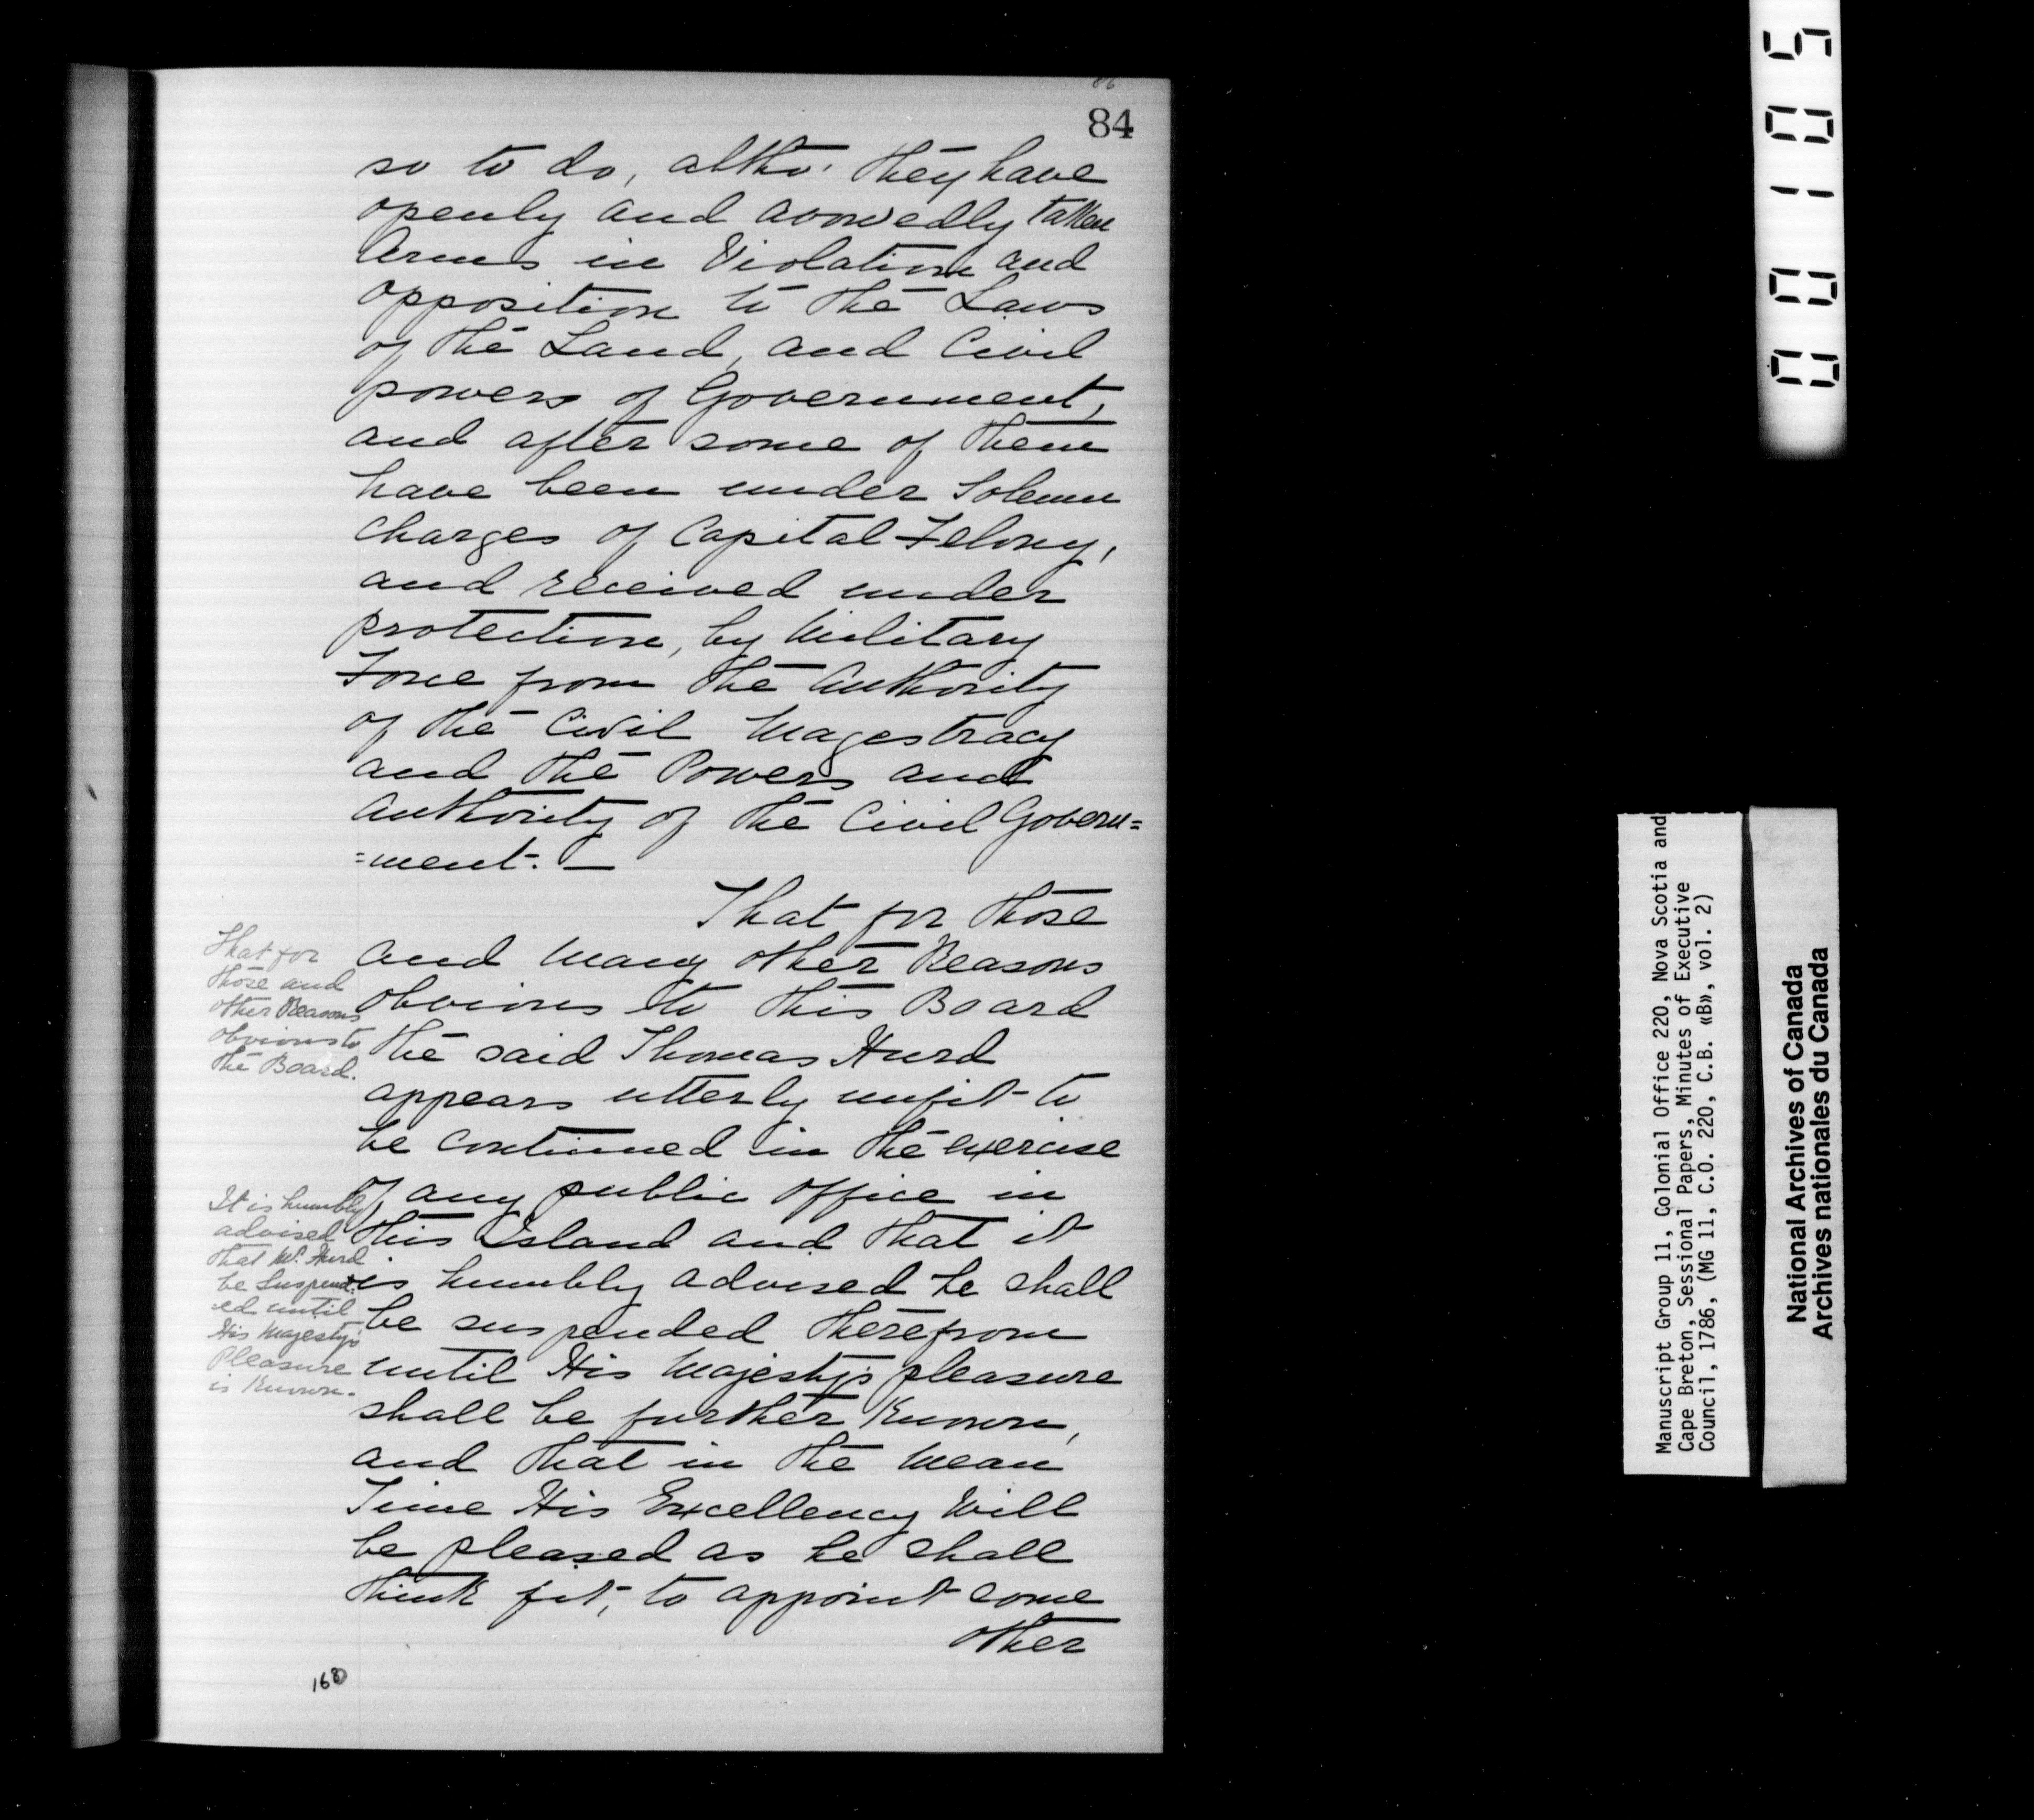 86
84
so to do, altho' they have
openly and avowedly taken
Arms in Violation and
opposition to the Laws
of the Land, and Civil
powers of Government,
and after some of them
have been under Solemn
charges of Capital Felony,
and received under
protection, by Military
Force from the Authority
of the Civil Magestracy
and the Powers and
Authority of the Civil Govern=
=ment. —
That for those
and many other Reasons
obvious to this Board
the said Thomas Hurd
appears utterly unfit to
be continued in the exercise
of any public office in
this Island and that it
is humbly advised he shall
be suspended therefrom
until His Majesty's pleasure
shall be further known,
and that in the mean
Time His Excellency Will
be pleased as he shall
think fit, to appoint some
other
That for
those and
other Reasons
obvious to
the Board.
It is humbly
advised
that Mr. Hurd
be Suspend=
=ed until
His Majesty's
Pleasure
is known.
168
00105
Manuscript Group 11, Colonial Office 220, Nova Scotia and
Cape Breton, Sessional Papers, Minutes of Executive
Council, 1786, (MG 11, C.O. 220, C.B. «B», vol. 2)
National Archives of Canada
Archives nationales du Canada